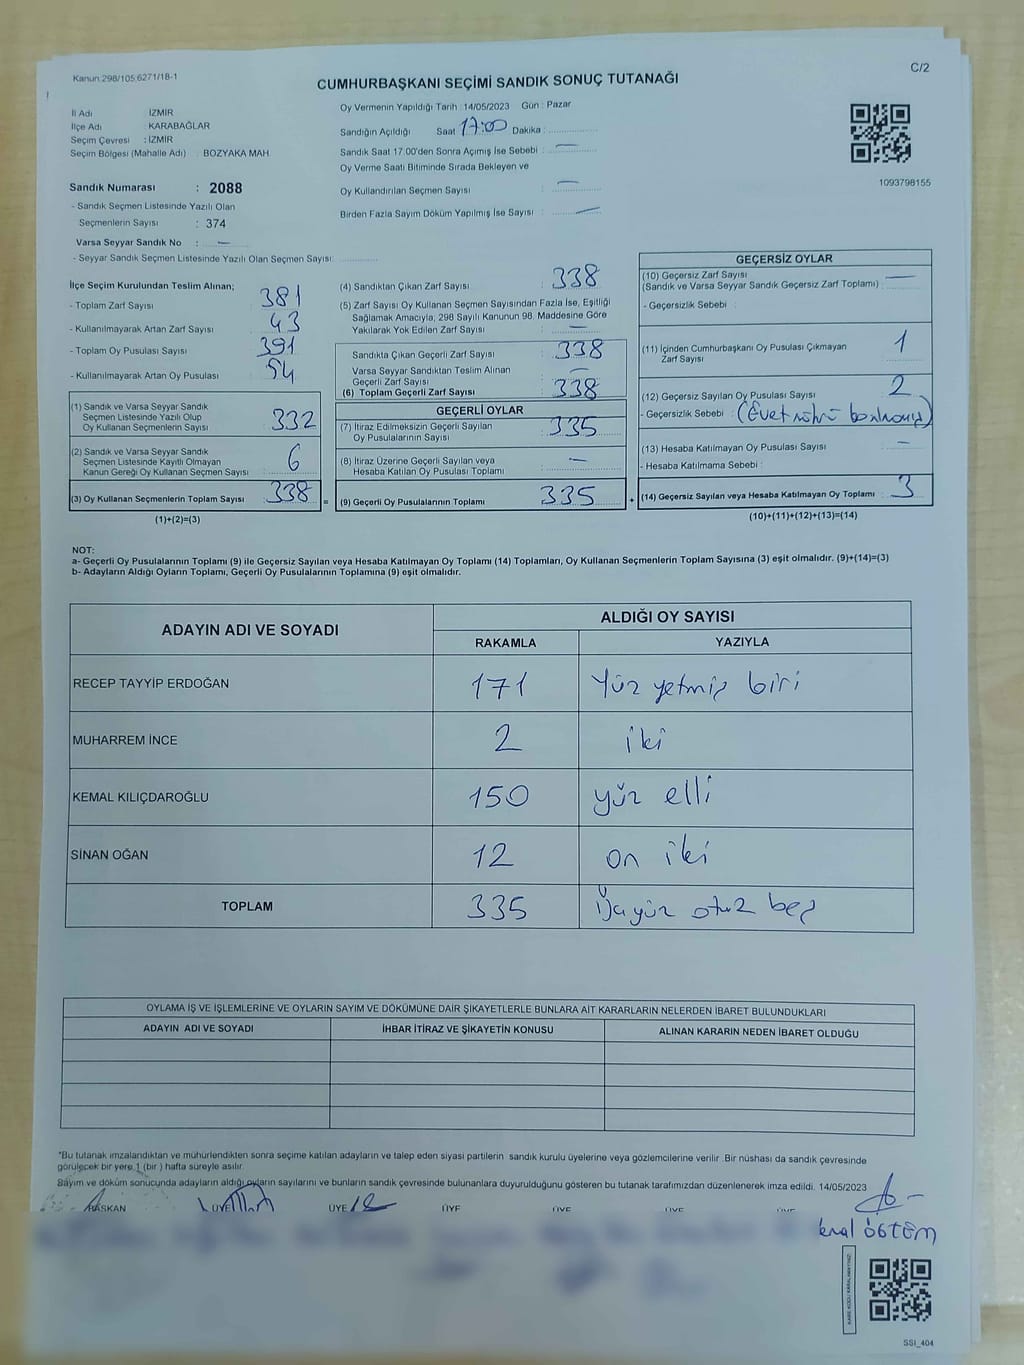 Kanun:298/105,6271/18-1
C/2
CUMHURBAŞKANI SEÇİMİ SANDIK SONUÇ TUTANAĞI
İl Adı İZMİR
İlçe Adı KARABAĞLAR
Seçim Çevresi : İZMİR
Seçim Bölgesi (Mahalle Adı) : BOZYAKA MAH.
Sandık Numarası : 2088
- Sandık Seçmen Listesinde Yazılı Olan
Seçmenlerin Sayısı : 374
Varsa Seyyar Sandık No : —
- Seyyar Sandık Seçmen Listesinde Yazılı Olan Seçmen Sayısı:
Oy Vermenin Yapıldığı Tarih : 14/05/2023 Gün : Pazar
Sandığın Açıldığı Saat 17:00 Dakika :
Sandık Saat 17.00'den Sonra Açımış İse Sebebi : —
Oy Verme Saati Bitiminde Sırada Bekleyen ve
Oy Kullandırılan Seçmen Sayısı : —
Birden Fazla Sayım Döküm Yapılmış İse Sayısı : —
1093798155
İlçe Seçim Kurulundan Teslim Alınan;
- Toplam Zarf Sayısı : 381
- Kullanılmayarak Artan Zarf Sayısı : 43
- Toplam Oy Pusulası Sayısı : 391
- Kullanılmayarak Artan Oy Pusulası : 54
(1) Sandık ve Varsa Seyyar Sandık
Seçmen Listesinde Yazılı Olup
Oy Kullanan Seçmenlerin Sayısı : 332
(2) Sandık ve Varsa Seyyar Sandık
Seçmen Listesinde Kayıtlı Olmayan
Kanun Gereği Oy Kullanan Seçmen Sayısı : 6
(3) Oy Kullanan Seçmenlerin Toplam Sayısı : 338
(1)+(2)=(3)
(4) Sandıktan Çıkan Zarf Sayısı : 338
(5) Zarf Sayısı Oy Kullanan Seçmen Sayısından Fazla İse, Eşitliği
Sağlamak Amacıyla; 298 Sayılı Kanunun 98. Maddesine Göre
Yakılarak Yok Edilen Zarf Sayısı : —
Sandıkta Çıkan Geçerli Zarf Sayısı : 338
Varsa Seyyar Sandıktan Teslim Alınan
Geçerli Zarf Sayısı : —
(6) Toplam Geçerli Zarf Sayısı : 338
GEÇERLİ OYLAR
(7) İtiraz Edilmeksizin Geçerli Sayılan
Oy Pusulalarının Sayısı : 335
(8) İtiraz Üzerine Geçerli Sayılan veya
Hesaba Katılan Oy Pusulası Toplamı : —
= (9) Geçerli Oy Pusulalarının Toplamı : 335
GEÇERSİZ OYLAR
(10) Geçersiz Zarf Sayısı
(Sandık ve Varsa Seyyar Sandık Geçersiz Zarf Toplamı) : —
- Geçersizlik Sebebi :
(11) İçinden Cumhurbaşkanı Oy Pusulası Çıkmayan
Zarf Sayısı : 1
(12) Geçersiz Sayılan Oy Pusulası Sayısı : 2
- Geçersizlik Sebebi : (Evet
(13) Hesaba Katılmayan Oy Pusulası Sayısı : —
- Hesaba Katılmama Sebebi :
+ (14) Geçersiz Sayılan veya Hesaba Katılmayan Oy Toplamı : 3
(10)+(11)+(12)+(13)=(14)
NOT:
a- Geçerli Oy Pusulalarının Toplamı (9) ile Geçersiz Sayılan veya Hesaba Katılmayan Oy Toplamı (14) Toplamları, Oy Kullanan Seçmenlerin Toplam Sayısına (3) eşit olmalıdır. (9)+(14)=(3)
b- Adayların Aldığı Oyların Toplamı, Geçerli Oy Pusulalarının Toplamına (9) eşit olmalıdır.
ADAYIN ADI VE SOYADI ALDIĞI OY SAYISI
RAKAMLA YAZIYLA
RECEP TAYYİP ERDOĞAN 171 Yüz yetmiş biri
MUHARREM İNCE 2 iki
KEMAL KILIÇDAROĞLU 150 yüz elli
SİNAN OĞAN 12 on iki
TOPLAM 335 Üçyüz otuz beş
OYLAMA İŞ VE İŞLEMLERİNE VE OYLARIN SAYIM VE DÖKÜMÜNE DAİR ŞİKAYETLERLE BUNLARA AİT KARARLARIN NELERDEN İBARET BULUNDUKLARI
ADAYIN ADI VE SOYADI İHBAR İTİRAZ VE ŞİKAYETİN KONUSU ALINAN KARARIN NEDEN İBARET OLDUĞU
*Bu tutanak imzalandıktan ve mühürlendikten sonra seçime katılan adayların ve talep eden siyasi partilerin sandık kurulu üyelerine veya gözlemcilerine verilir .Bir nüshası da sandık çevresinde
görülecek bir yere 1 (bir ) hafta süreyle asılır.
Sayım ve döküm sonucunda adayların aldığı oyların sayılarını ve bunların sandık çevresinde bulunanlara duyurulduğunu gösteren bu tutanak tarafımızdan düzenlenerek imza edildi. 14/05/2023
BAŞKAN ÜYE ÜYE ÜYE ÜYE ÜYE ÜYE
SSI_404